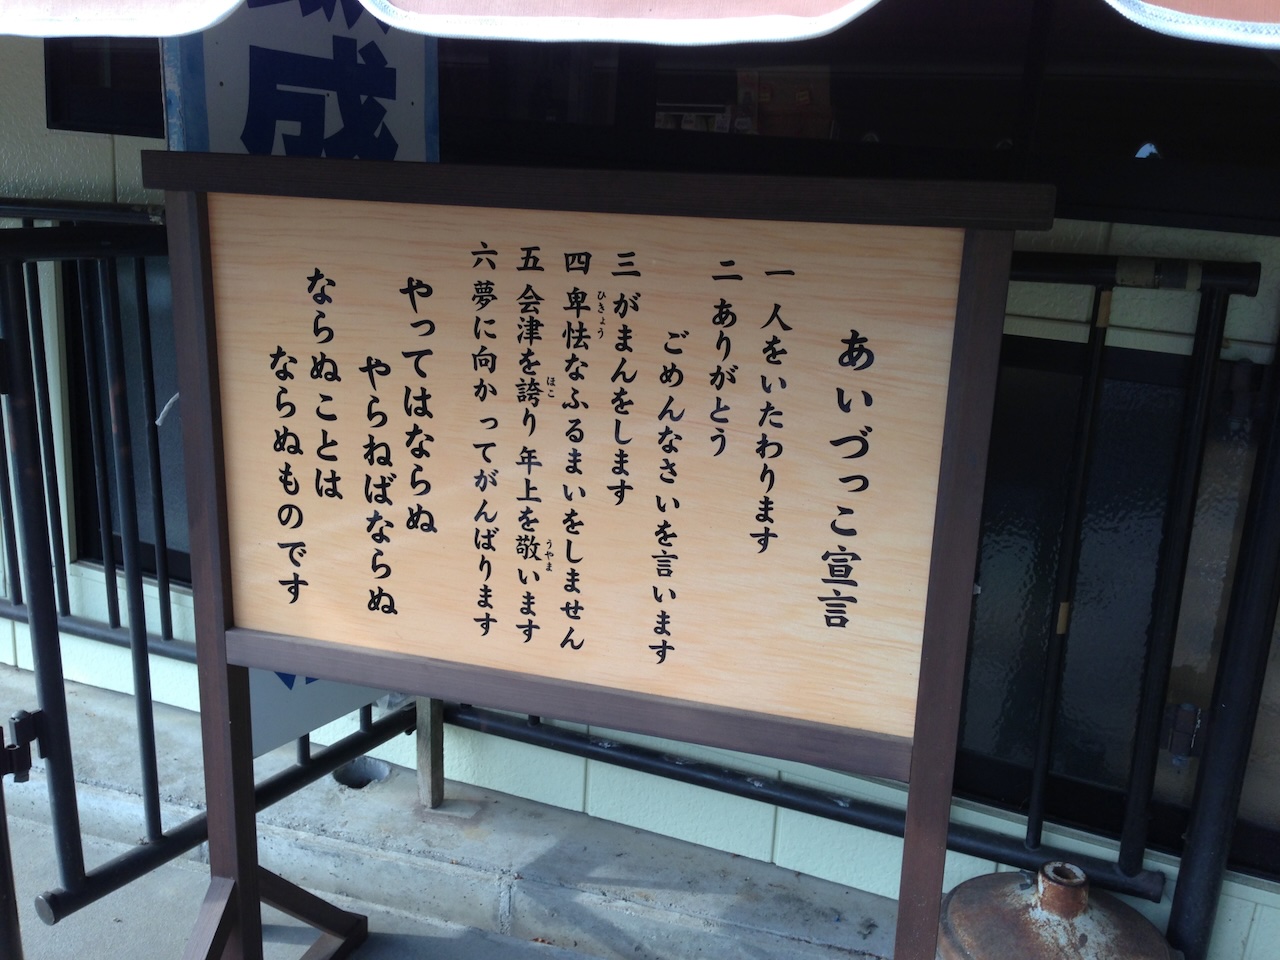 あいづっこ宣言
一 人をいたわります
二 ありがとう
ごめんなさいを言います
三 がまんをします
四 卑怯なふるまいをしません
ひきょう
五 会津を誇り 年上を敬います
ほこ
うやま
六 夢に向かってがんばります
やってはならぬ
やらねばならぬ
ならぬことは
ならぬものです
成